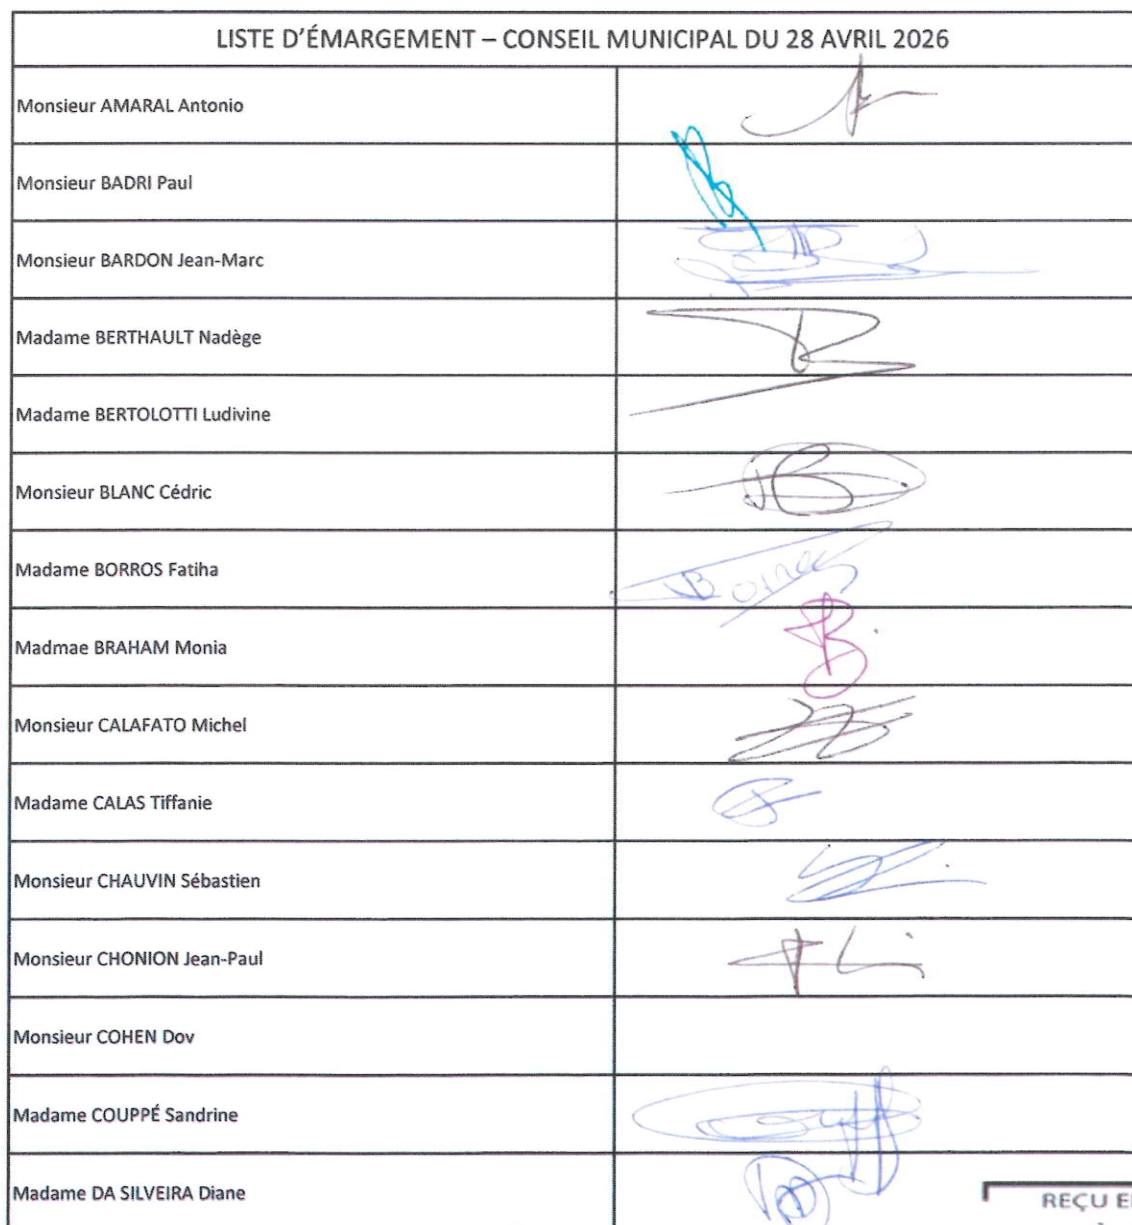 LISTE D'ÉMARGEMENT – CONSEIL MUNICIPAL DU 28 AVRIL 2026
Monsieur AMARAL Antonio
Monsieur BADRI Paul
Monsieur BARDON Jean-Marc
Madame BERTHAULT Nadège
Madame BERTOLOTTI Ludivine
Monsieur BLANC Cédric
Madame BORROS Fatiha
Madmae BRAHAM Monia
Monsieur CALAFATO Michel
Madame CALAS Tiffanie
Monsieur CHAUVIN Sébastien
Monsieur CHONION Jean-Paul
Monsieur COHEN Dov
Madame COUPPÉ Sandrine
Madame DA SILVEIRA Diane
REÇU